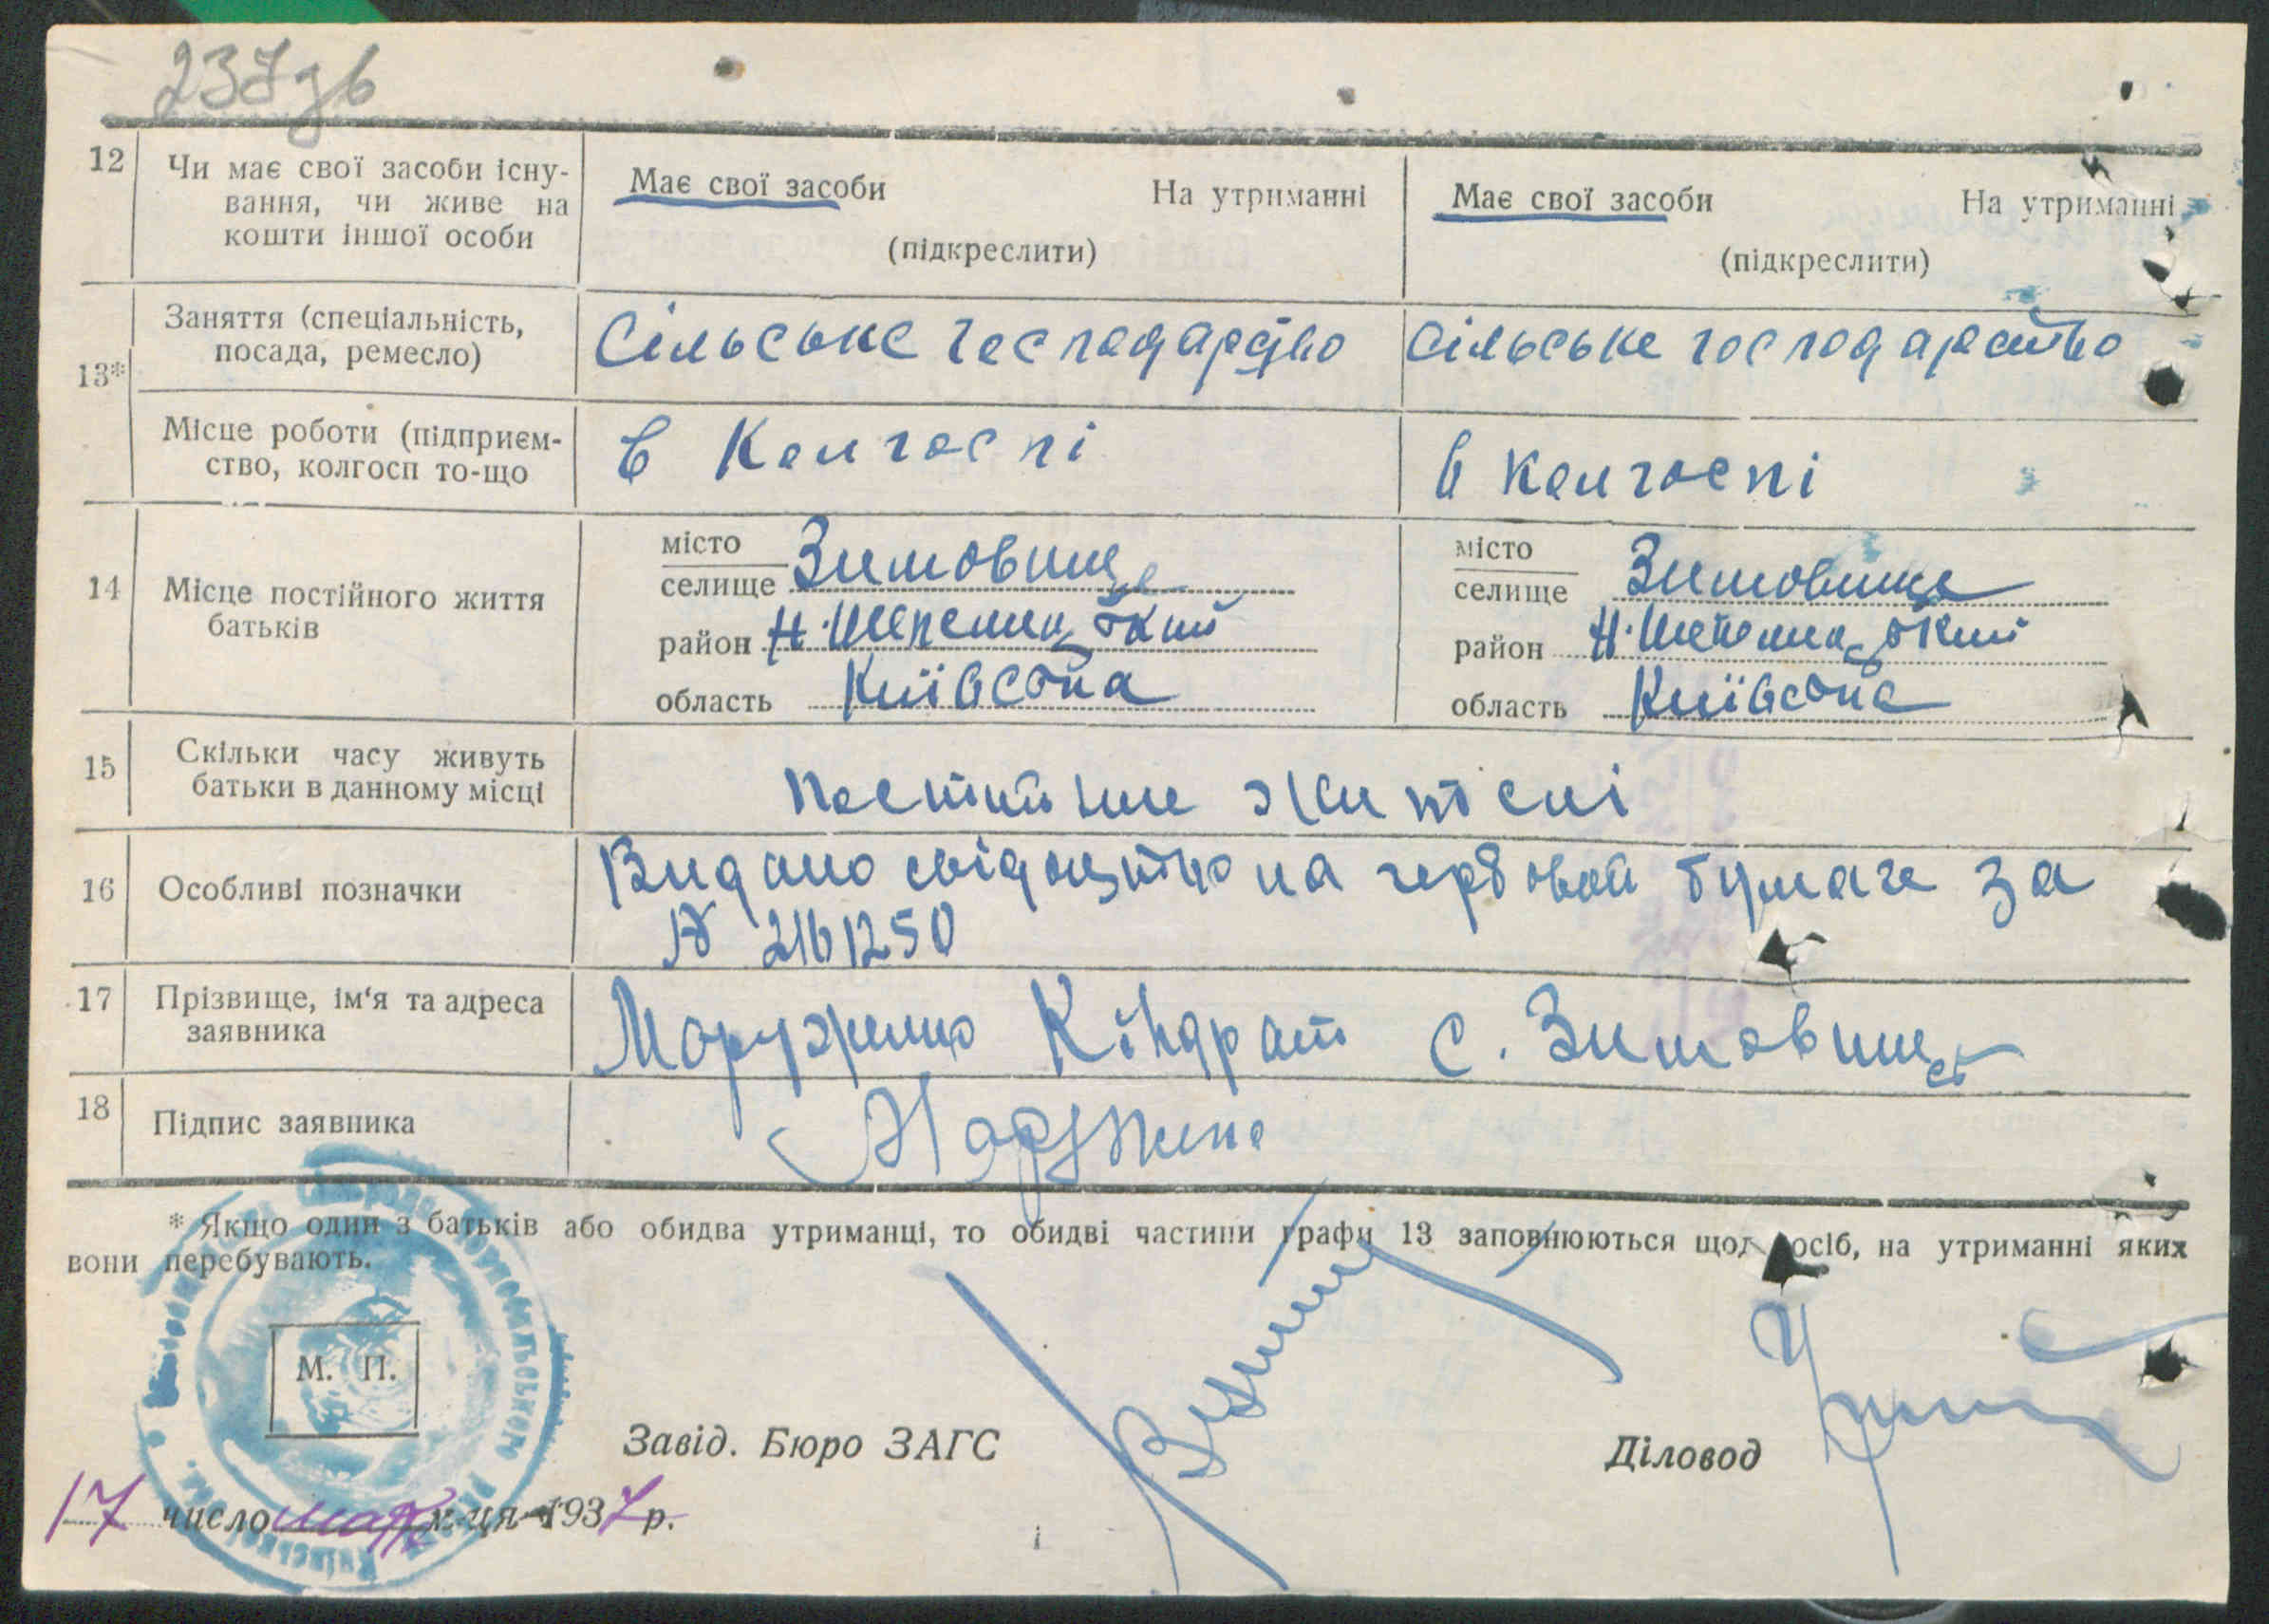 237зв
12 Чи має свої засоби існу-
вання, чи живе на
кошти іншої особи
Має свої засоби На утриманні
(підкреслити)
Має свої засоби На утриманні
(підкреслити)
13*
Заняття (спеціальність,
посада, ремесло)
Сільське господарство
Сільське господарство
Місце роботи (підприєм-
ство, колгосп то-що
в Колгоспі
в Колгоспі
14 Місце постійного життя
батьків
місто
селище Зимовище
район Н.Шепелицький
область Київська
місто
селище Зимовище
район Н.Шепелицький
область Київська
15 Скільки часу живуть
батьки в данному місці
постійние жителі
16 Особливі позначки
Видано свідоцтво на гербовой бумаге за
№ 2161250
17 Прізвище, ім'я та адреса
заявника
Кіндрат с. Зимовище
18 Підпис заявника
* Якщо один з батьків або обидва утриманці, то обидві частини графи 13 заповнюються щод осіб, на утриманні яких
вони перебувають.
М. П.
Завід. Бюро ЗАГС
Діловод
17 число март м-ця 1937 р.